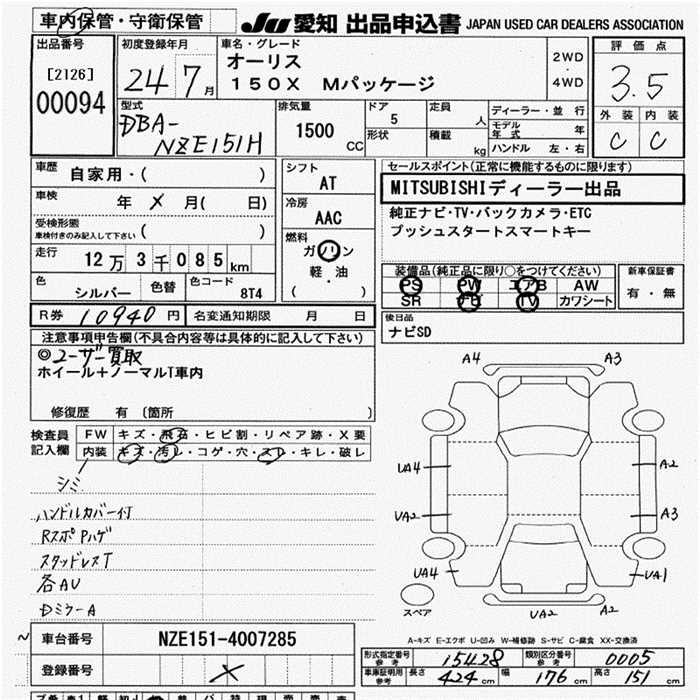 車内保管・守衛保管
JU 愛知 出品申込書 JAPAN USED CAR DEALERS ASSOCIATION
出品番号
[2126]
00094
初度登録年月
24 7月
車名・グレード
オーリス
150X Mパッケージ
2WD
・
4WD
評価点
3.5
外装 内装
C C
型式
DBA-
NZE151H
排気量
1500
CC
ドア
5
形状
定員
人
積載
kg
ディーラー・並行
モデル年式 年
ハンドル 左・右
車歴
自家用・( )
車検
年 メ 月( 日)
受検形態
車検付きのみ記入して下さい ( )
走行
12万3千085km
色
シルバー
色替
色コード
8T4
シフト
AT
冷房
AAC
燃料
ガソリン
軽・油
( )
セールスポイント(正常に機能するものに限ります)
MITSUBISHIディーラー出品
純正ナビ・TV・バックカメラ・ETC
プッシュスタートスマートキー
装備品(純正品に限り○をつけてください)
PS PW エアB AW
SR ナビ TV カワシート
新車保証書
有・無
R券 10940円
名変通知期限 月 日
後日品
ナビSD
注意事項申告欄(不具合内容等は具体的に記入して下さい)
◎ユーザー買取
ホイール+ノーマルT車内
修復歴 有 〔箇所 〕
検査員
記入欄
FW キズ・飛石・ヒビ割・リペア跡・X要
内装 キズ・汚レ・コゲ・穴・スレ・キレ・破レ
シミ
ハンドルカバー付
RスポPハゲ
スタッドレスT
各AU
Dミラー A
A4 A3
UA4 A2
UA2 A3
UA4 UA1
スペア
UA2 A2
A-キズ E-エクボ U-凹み W-補修跡 S-サビ C-腐食 XX-交換済
~ 車台番号 NZE151-4007285
登録番号 メ
形式指定番号
参考
15428
類別区分番号
参考
0005
車庫証明用
参考
長さ 424cm 幅 176cm 高さ 151cm